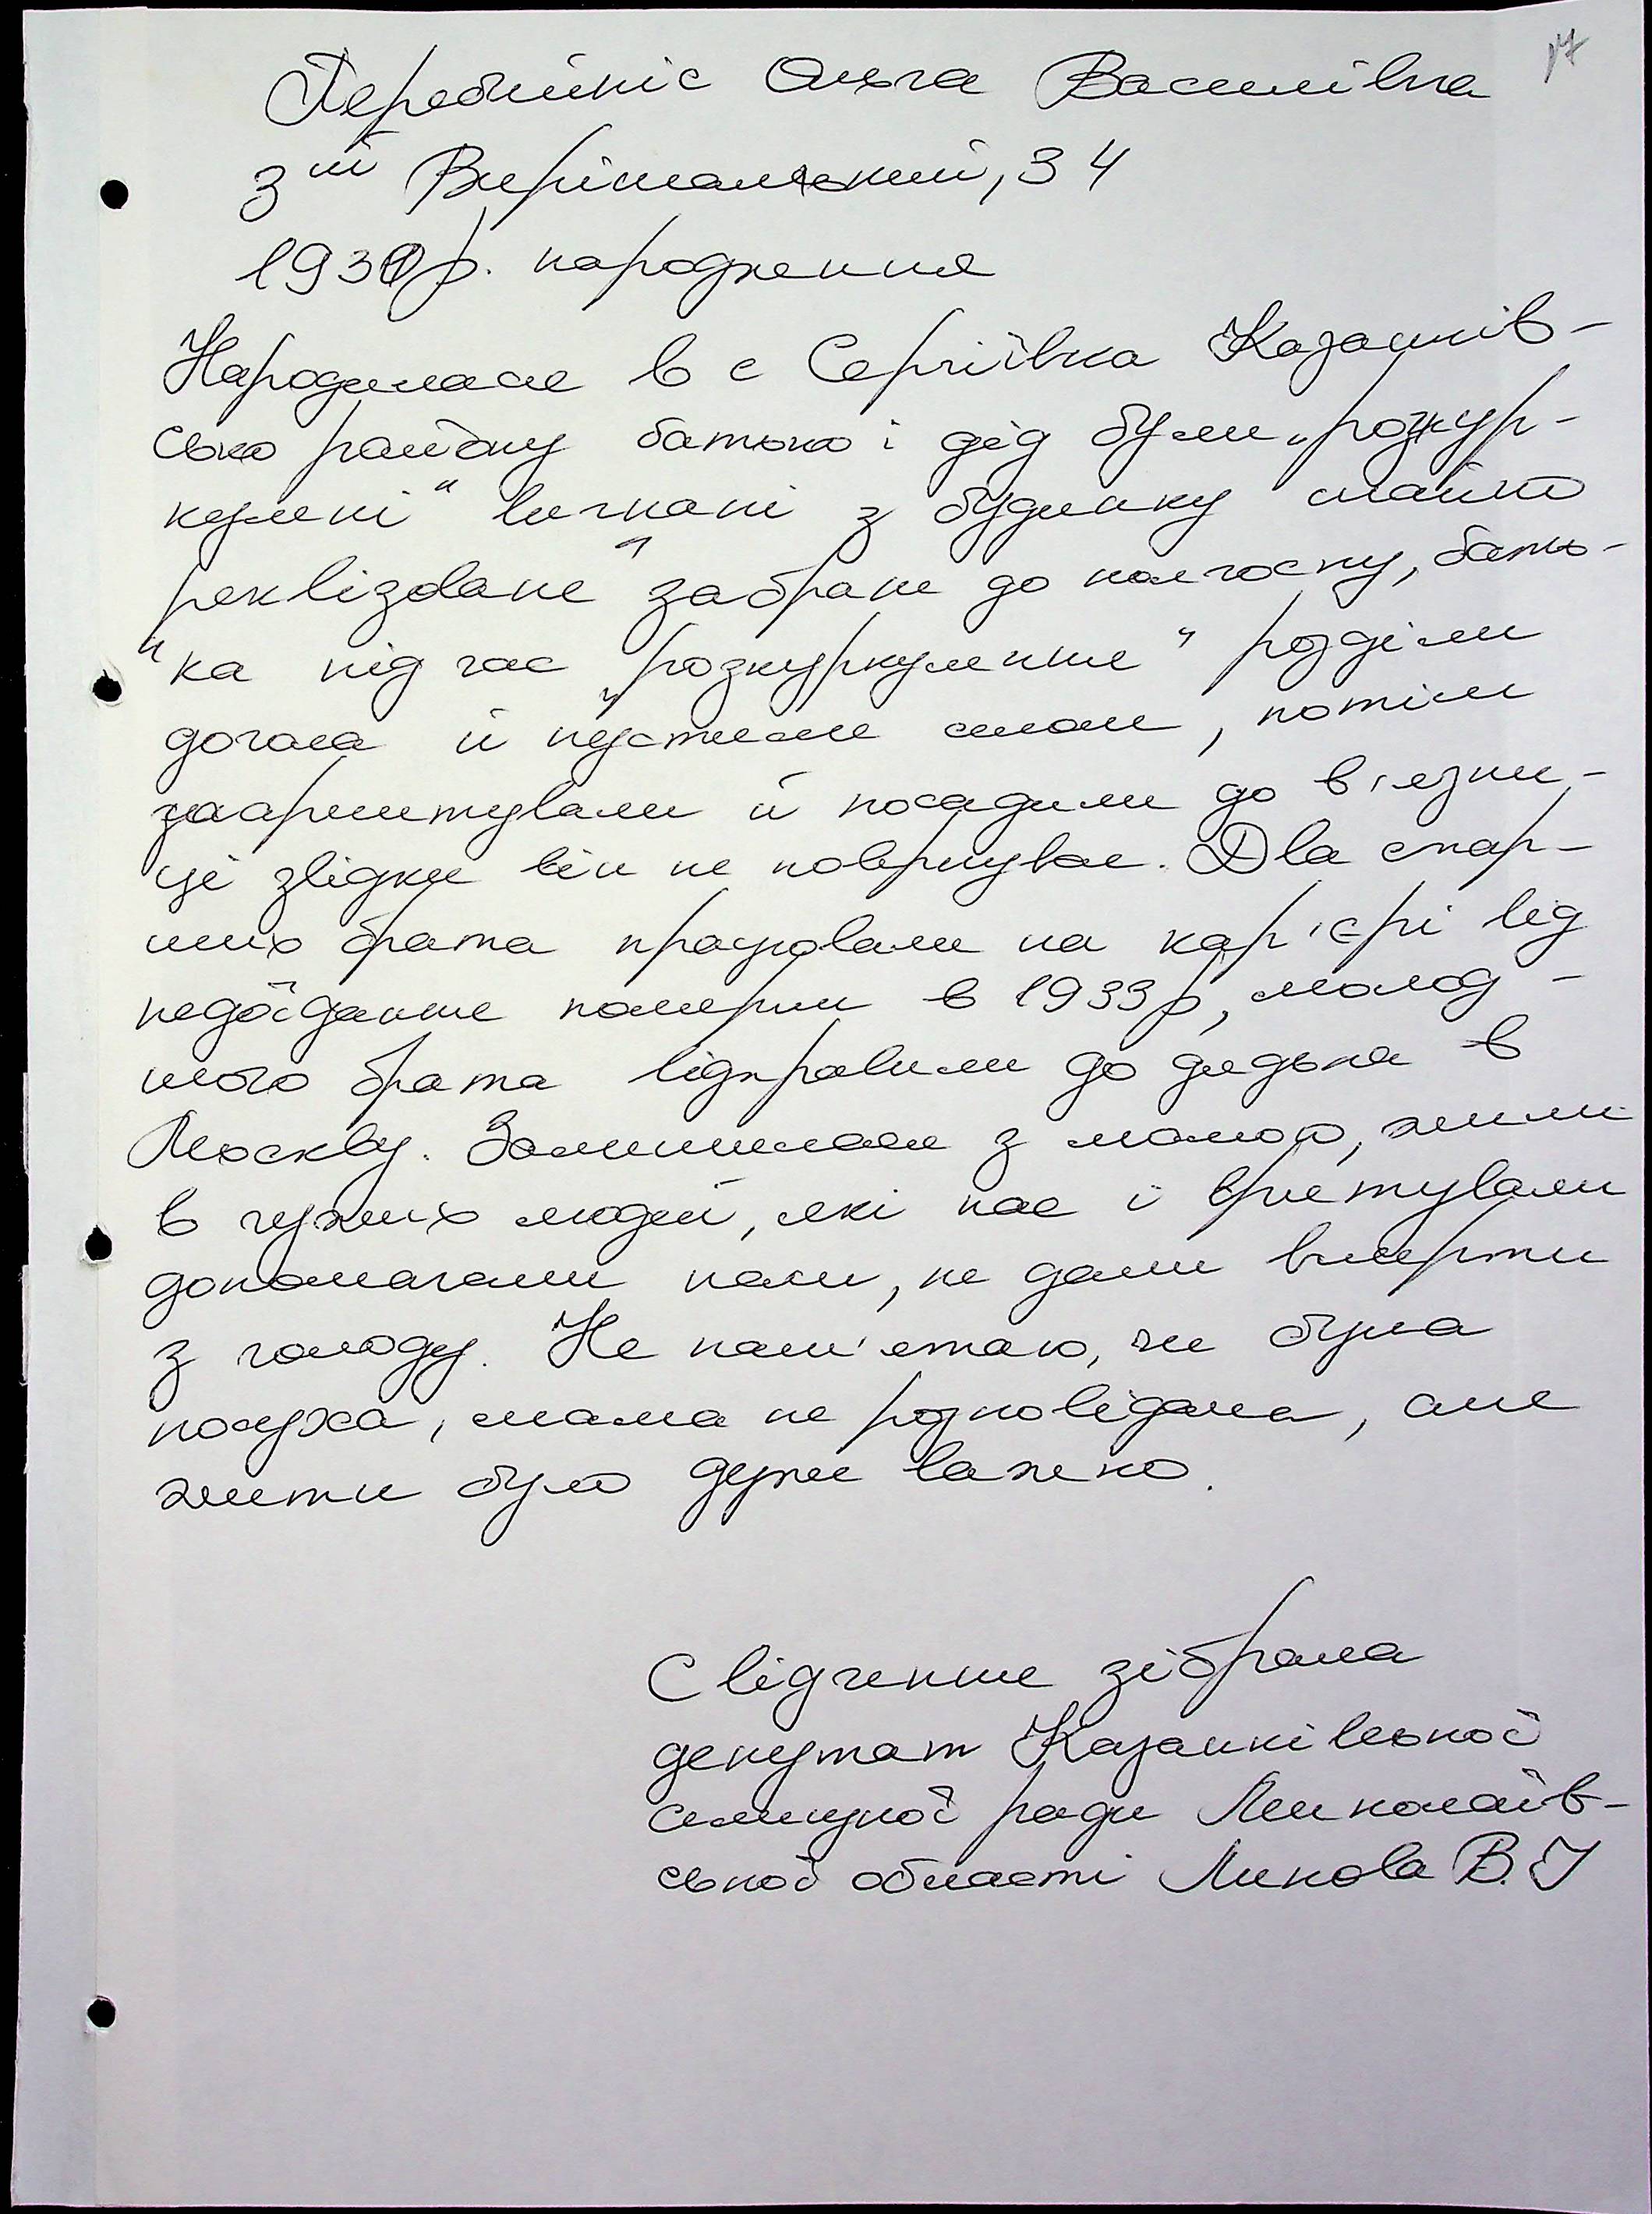 17
Перебийніс Ольга Василівна
3й Вирішальний, 34
1931р. народження
Народилася в с Сергіївка Казанків-
сько району батько і дід були „розкур-
кулені" вигнані з будинку майно
реквізоване забране до колгоспу, бать-
ка під час „розкуркулення" розділи
догола й пустили селом, потім
заарештували й посадили до в'язни-
ці звідки він не повернувся. Два стар-
ших брата працювали на кар'єрі від
недоїдання померли в 1933р, молод-
шого брата відправили до дядька в
Москву. Залишилася з мамою, жили
в чужих людей, які нас і врятували
допомагали нам, не дали вмерти
з голоду. Не пам'ятаю, чи була
посуха, мама не розповідала, але
жити було дуже важко.
Свідчення зібрала
депутат Казанківської
селищної ради Миколаїв-
ської області Линова В.І